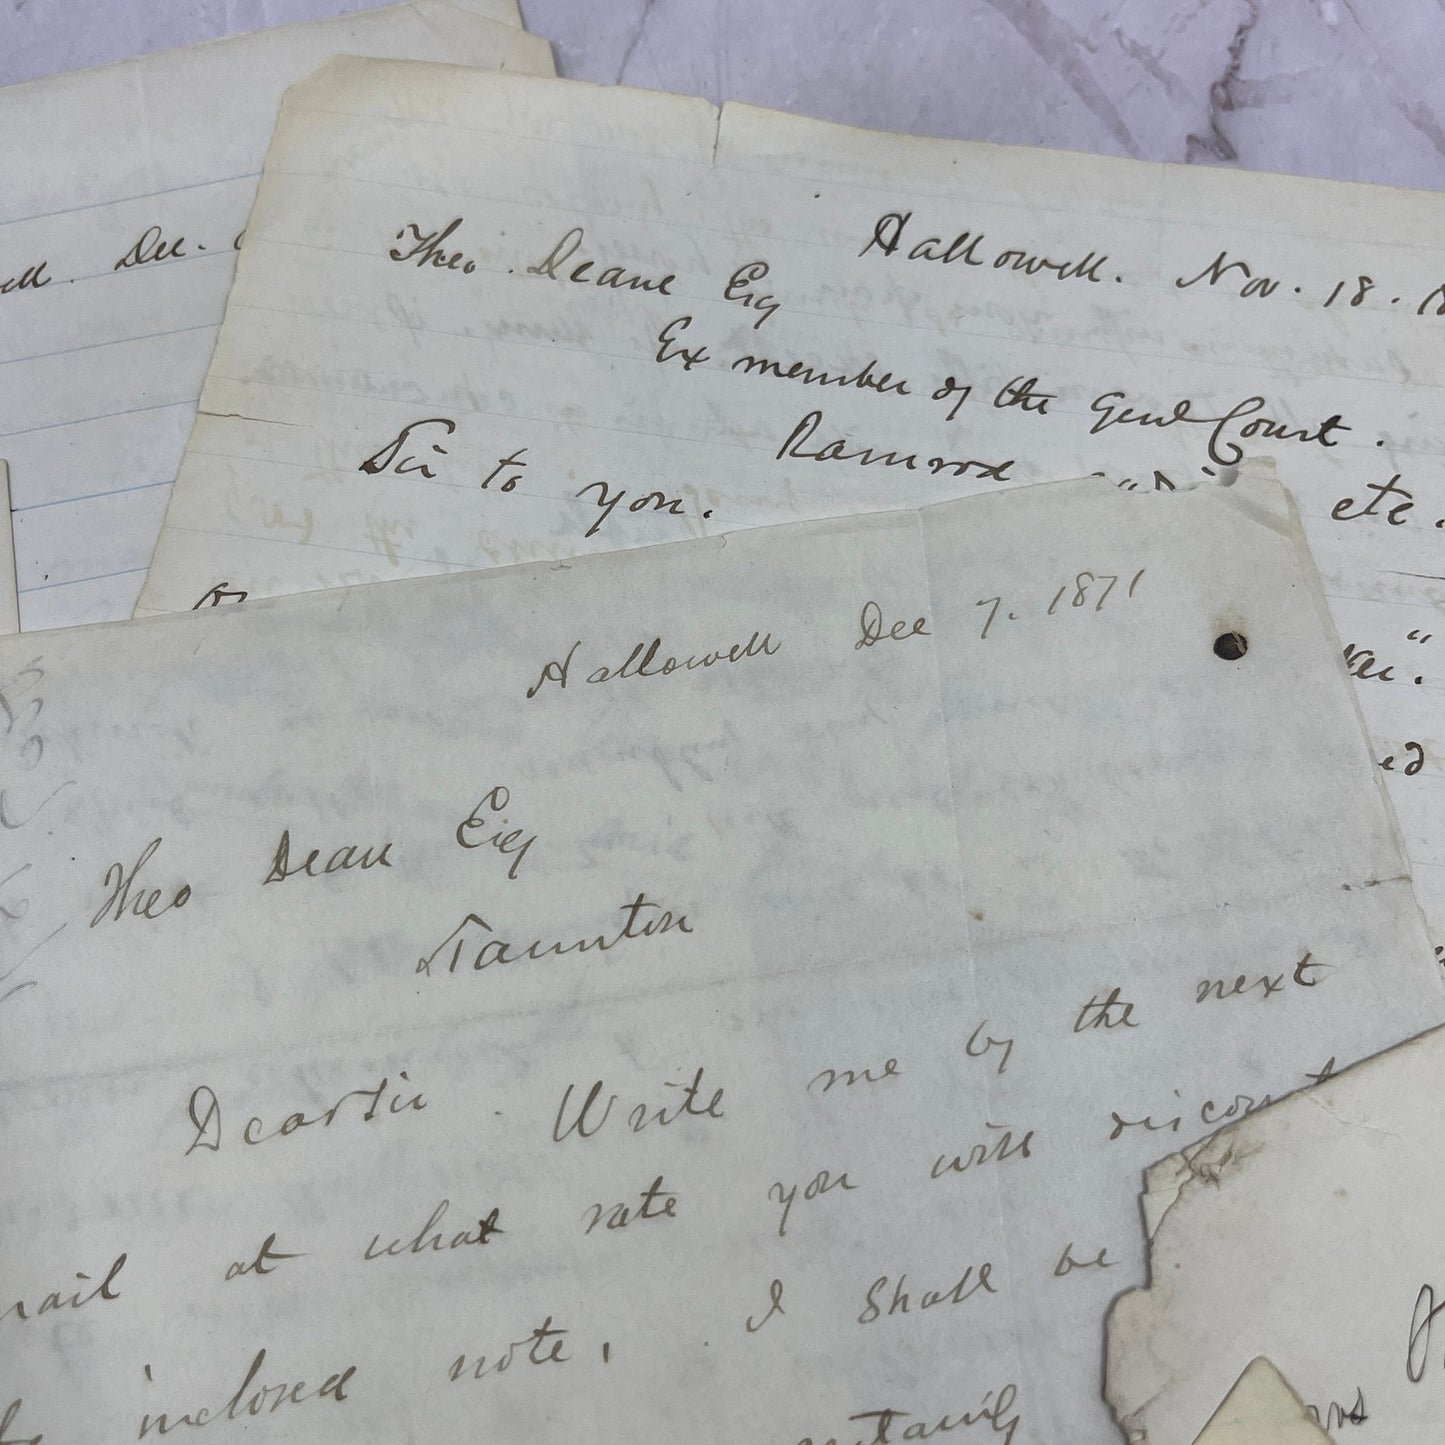 Dec.
Hallowell. Nov. 18.
Theo. Deane Esq
Ex member of the Genl Court.
Ramrod etc.
Sir to you.
Hallowell Dec 7. 1871
Theo Deane Esq
Taunton
Dear Sir. Write me by the next
mail at what rate you will discount
inclosed note, I shall be